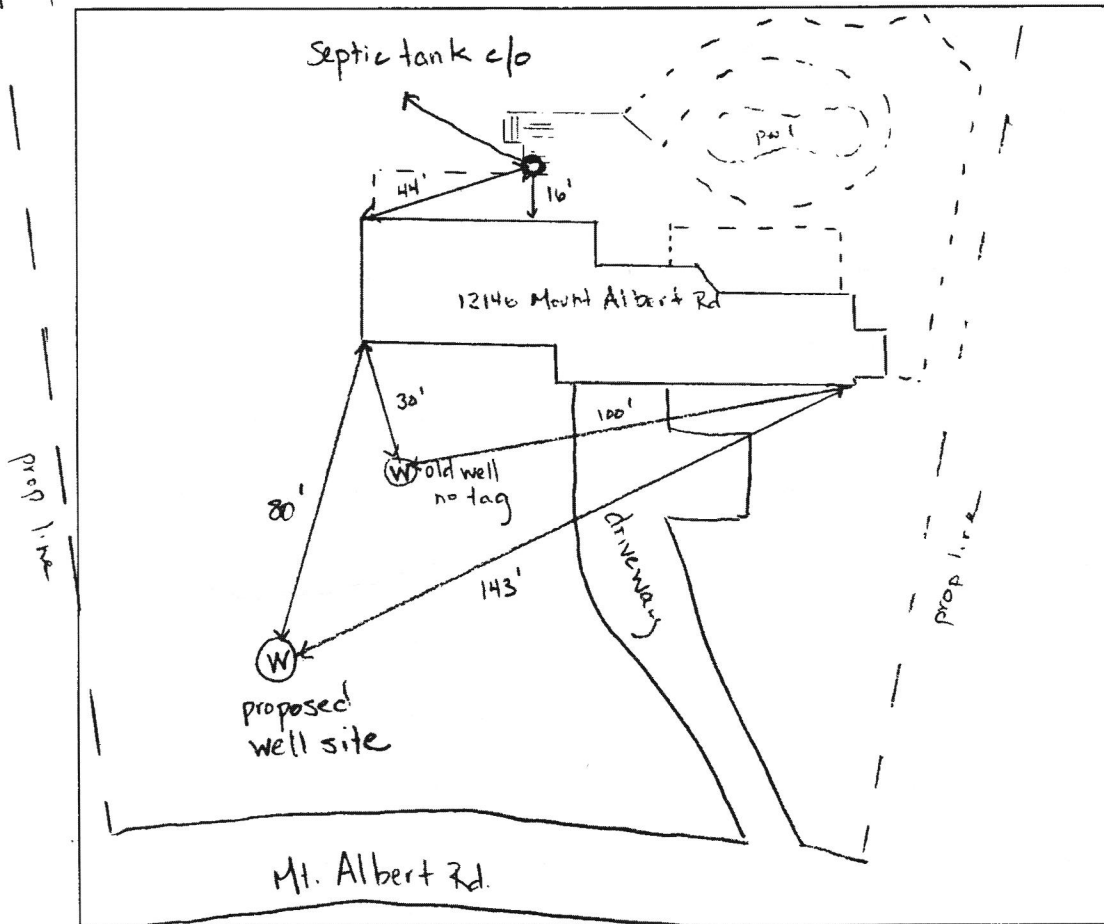 Septic tank c/o
pool
44'
16'
12146 Mount Albert Rd
30'
100'
W old well
no tag
80'
prop line
143'
driveway
prop line
W
proposed
well site
Mt. Albert Rd.